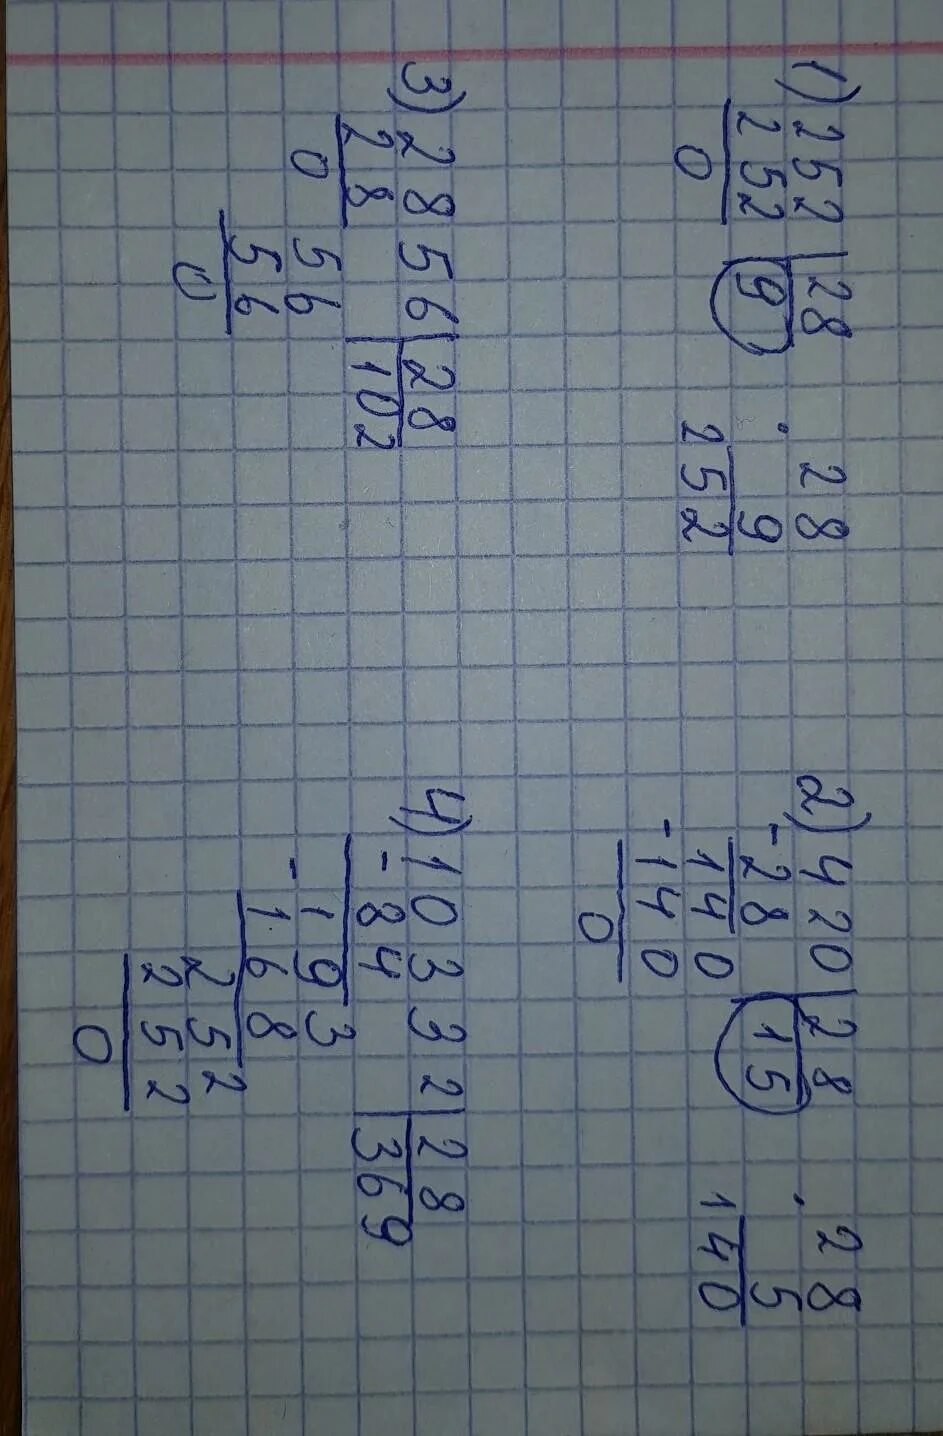 1) 252 | 28
252 9
0
· 28
9
252
2) 420 | 28
- 28 15
140
- 140
0
· 28
5
140
3) 2856 | 28
28 102
0
56
56
0
4) 10332 | 28
- 84 369
193
- 168
252
252
0